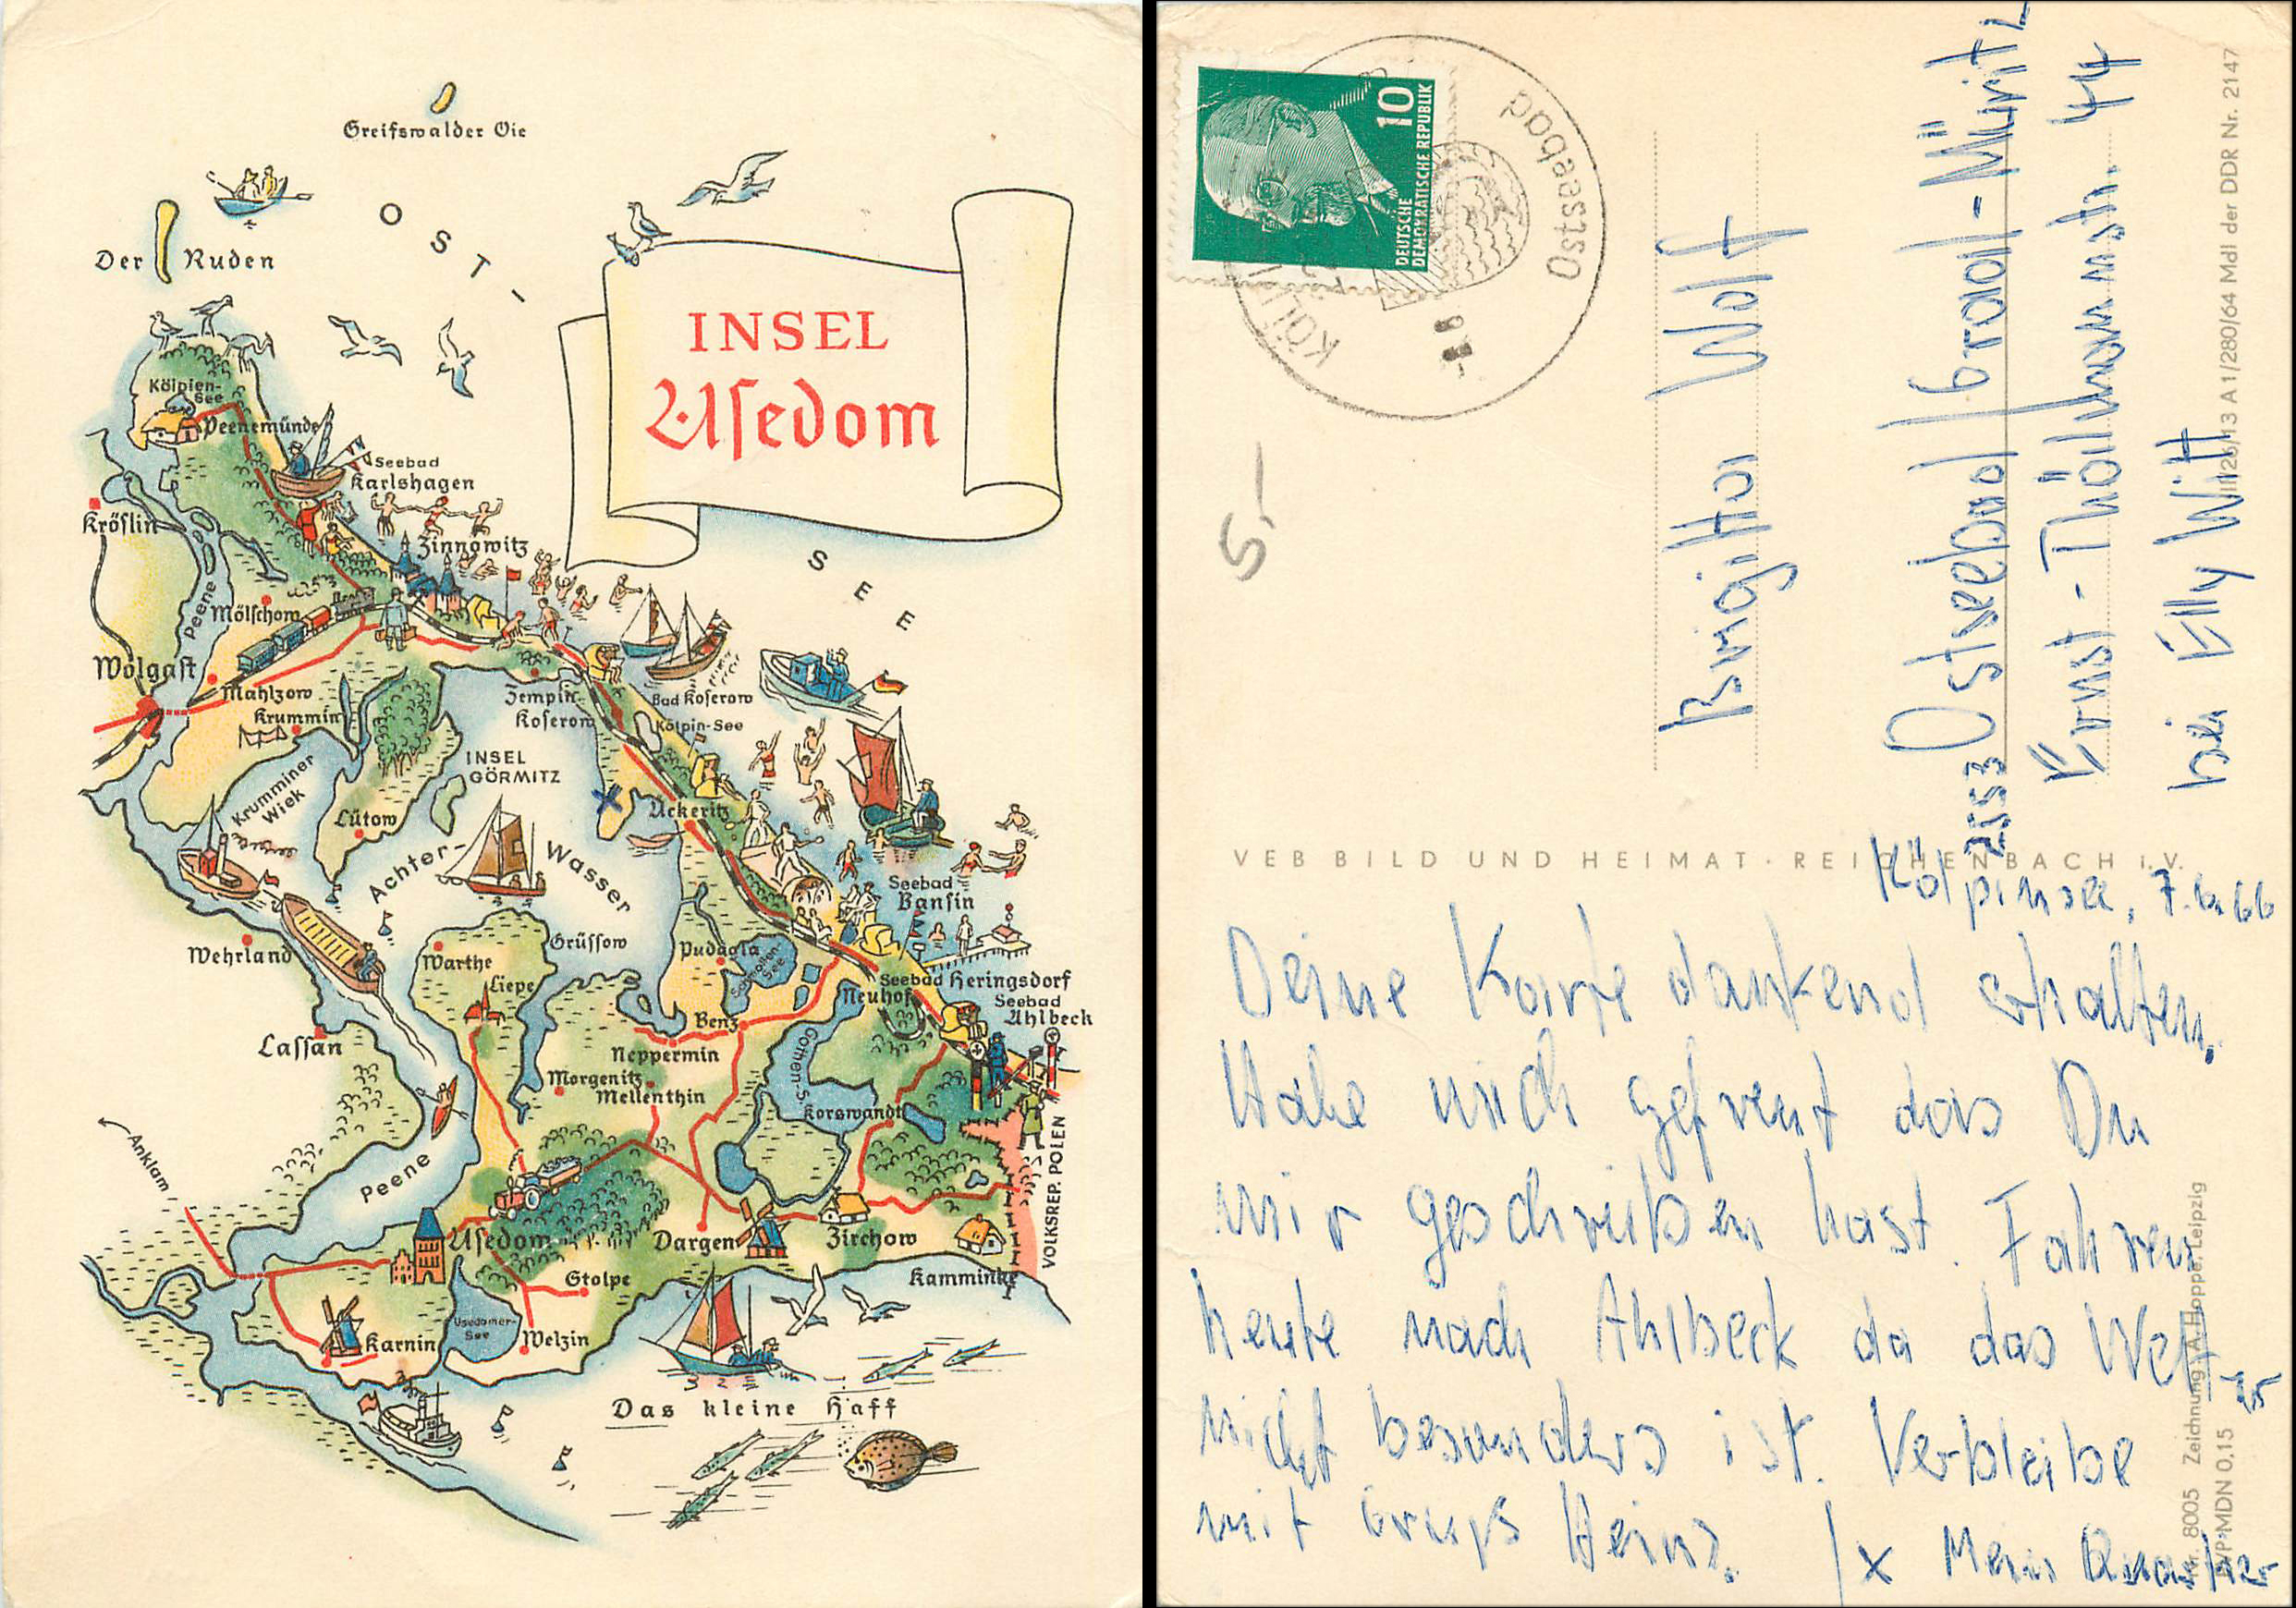 Greifswalder Oie
OST-
Der Ruden
INSEL
Usedom
Kölpien-
See
Peenemünde
Seebad
Karlshagen
Kröslin
Zinnowitz
SEE
Peene
Mölschow
Wolgast
Mahlzow
Krummin
Zempin
Koserow
Bad Koserow
Kölpin-See
INSEL
GÖRMITZ
Krumminer
Wiek
Lütow
Ückeritz
Achter-
Wasser
Seebad
Bansin
Wehrland
Warthe
Grüssow
Pudagla
Schmollen-
See
Liepe
Seebad Heringsdorf
Neuhof
Seebad
Ahlbeck
Benz
Lassan
Neppermin
Gothen-S.
Morgenitz
Mellenthin
Korswandt
Anklam
Peene
VOLKSREP. POLEN
Usedom
Dargen
Zirchow
Stolpe
Kamminke
Usedomer-
See
Karnin
Welzin
Das kleine Haff
10
DEUTSCHE
DEMOKRATISCHE REPUBLIK
Ostseebad
5,-
Brigitta Wolf
2553 Ostseebad Graal-Müritz
Ernst-Thälmannstr. 44
bei Elly Witt
III/26/13 A 1/280/64 MdI der DDR Nr. 2147
VEB BILD UND HEIMAT · REICHENBACH i. V.
Kölpinsee, 7.6.66
Deine Karte dankend erhalten.
Habe mich gefreut das Du
mir geschrieben hast. Fahren
heute nach Ahlbeck da das Wet
ter
nicht besonders ist. Verbleibe
mit Gruß Heinz.
x Mein Quartier
Nr. 8005 Zeichnung: A. Hoppe, Leipzig
EVP: MDN 0,15